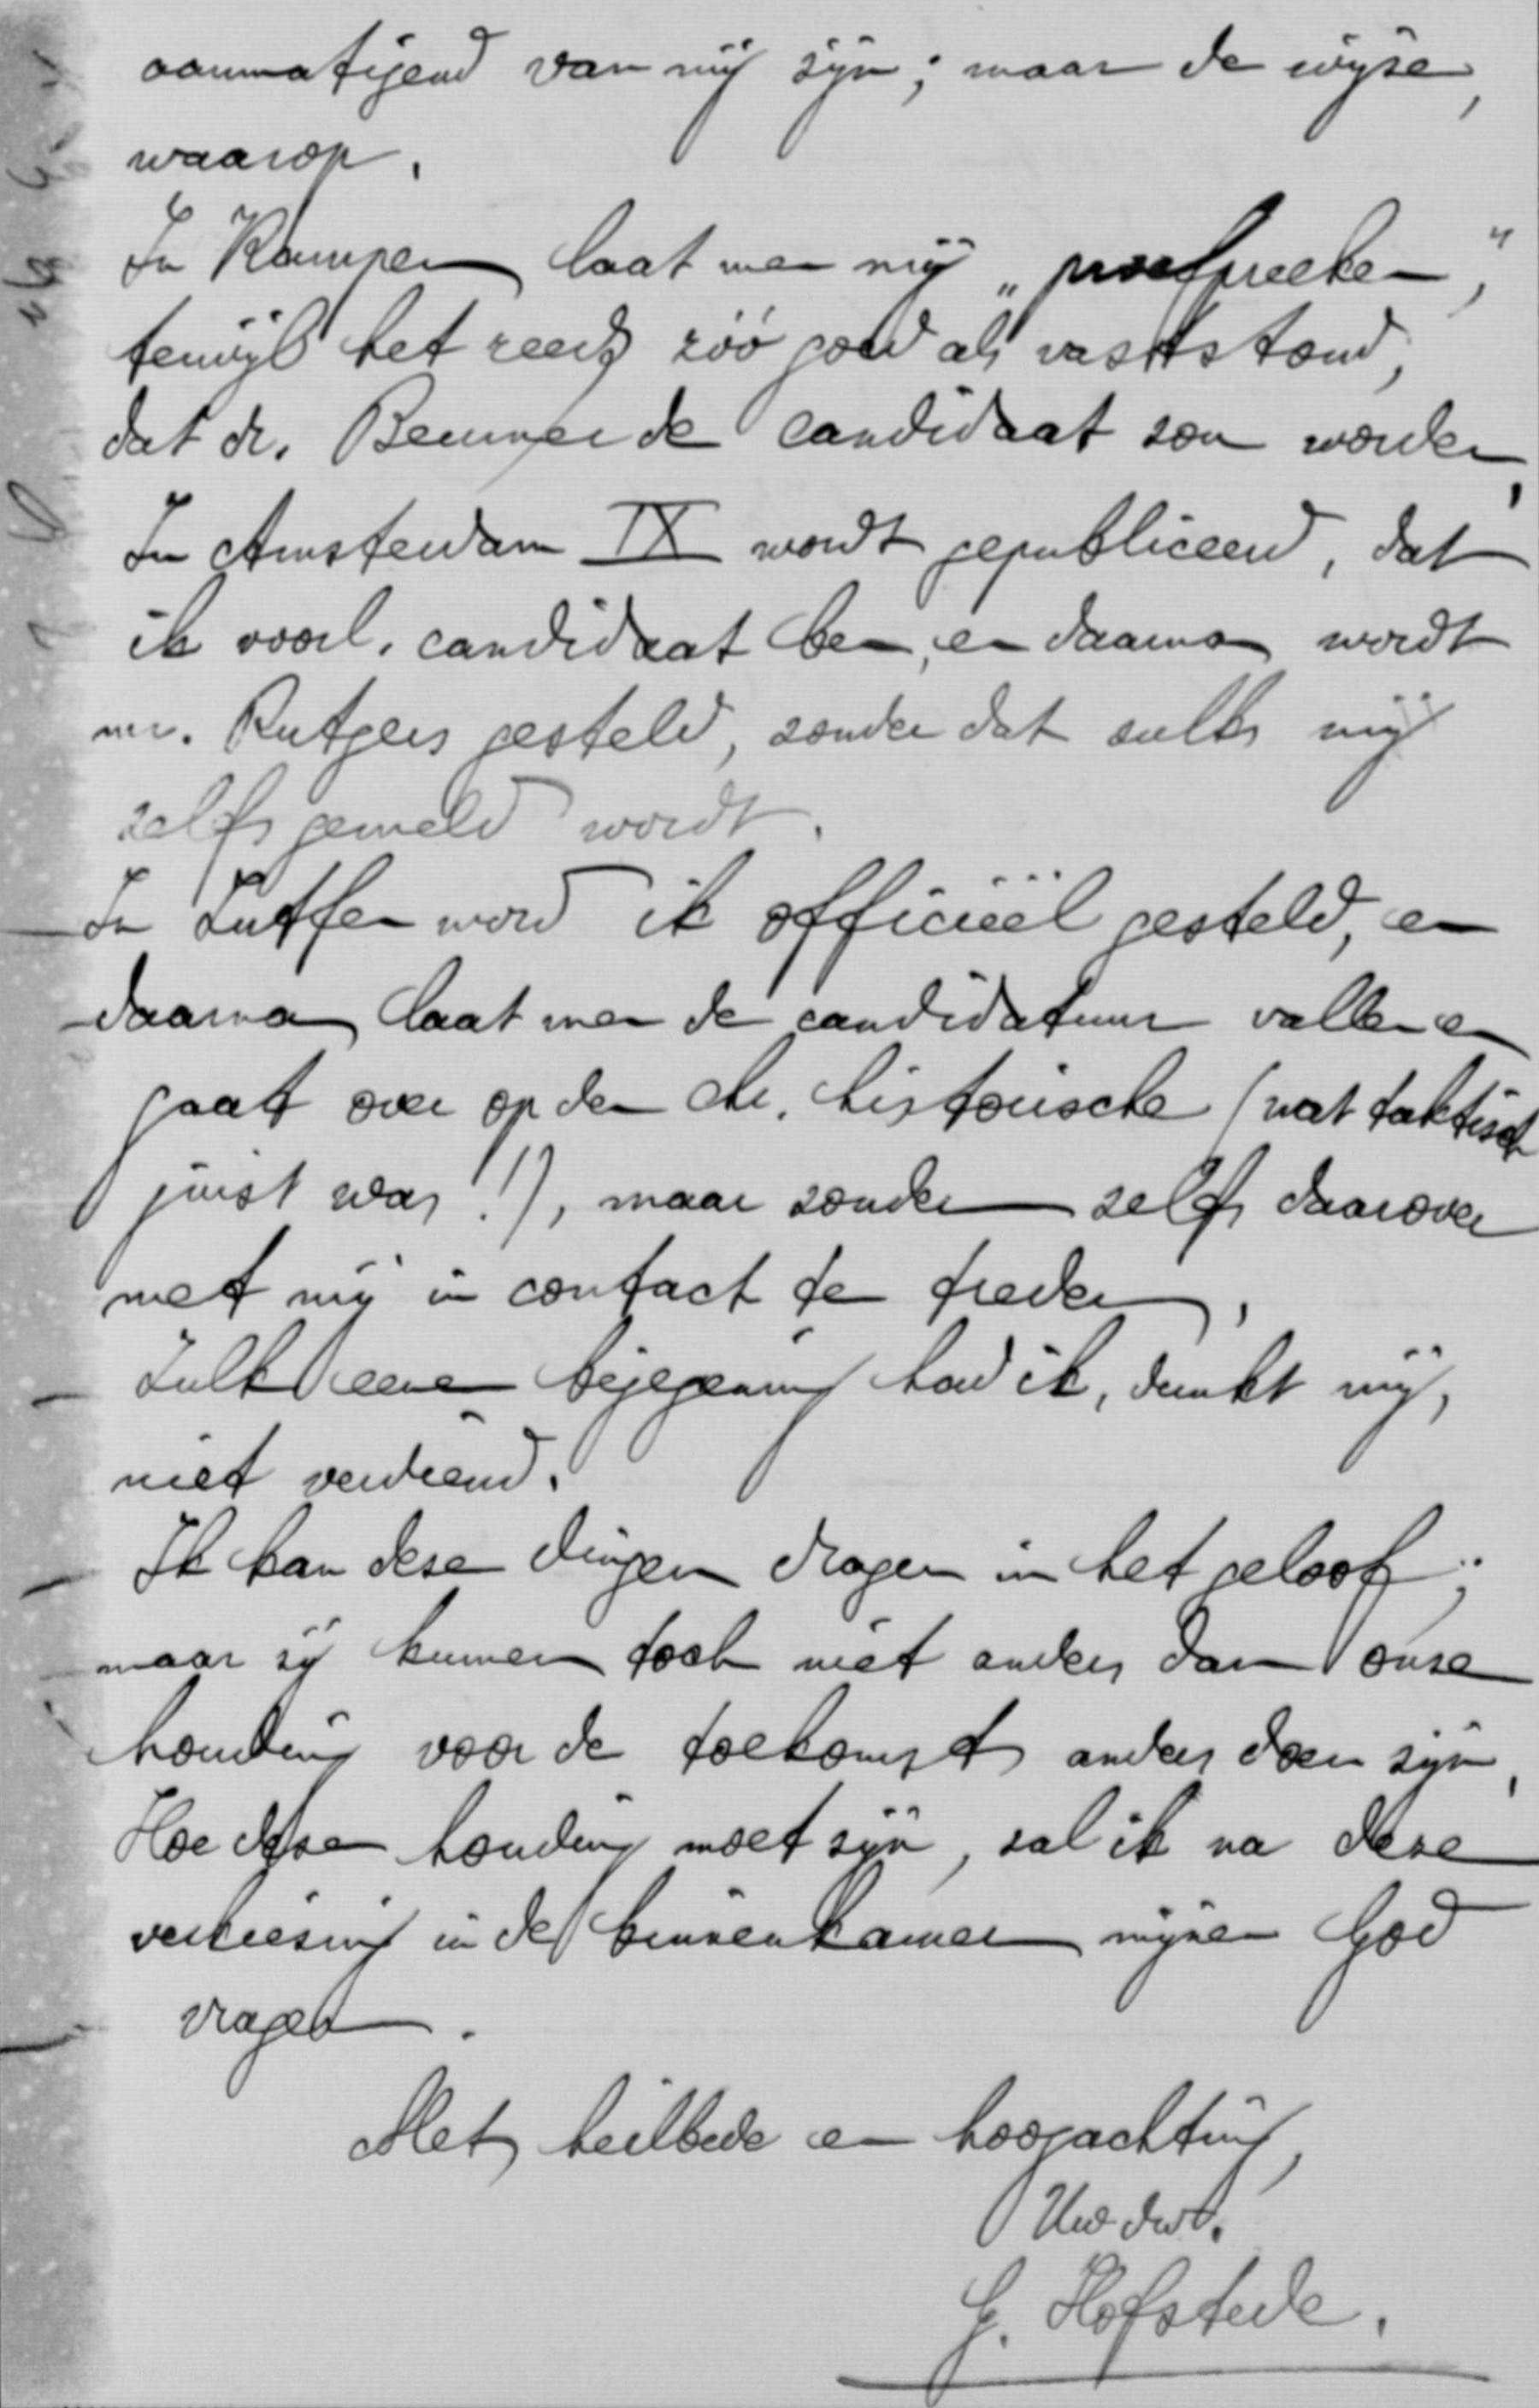 aanmatigend van mij zijn; maar de wijze,
waarop.
In Kampen laat men mij „proefpreeken",
terwijl het reeds zóó goed als vaststond,
dat dr. Beumer de candidaat zou worden,
In Amsterdam IX wordt gepubliceerd, dat
ik voorl. candidaat ben, en daarna wordt
mr. Rutgers gesteld, zonder dat zulks mij
zelfs gemeld wordt.
In Zutfen word ik officieël gesteld, en
daarna laat men de candidatuur vallen en
gaat over op den chr. historische (wat taktisch
juist was!), maar zonder zelfs daarover
met mij in contact te treden.
Zulk eene bejegening had ik, dunkt mij,
niet verdiend.
Ik kan deze dingen dragen in het geloof;
maar zij kunnen toch niet anders dan onze
houding voor de toekomst anders doen zijn.
Hoe deze houding moet zijn, zal ik na deze
verkiezing in de binnenkamer mijnen God
vragen.
Met heilbede en hoogachting,
Uw dw.
G. Hofstede.